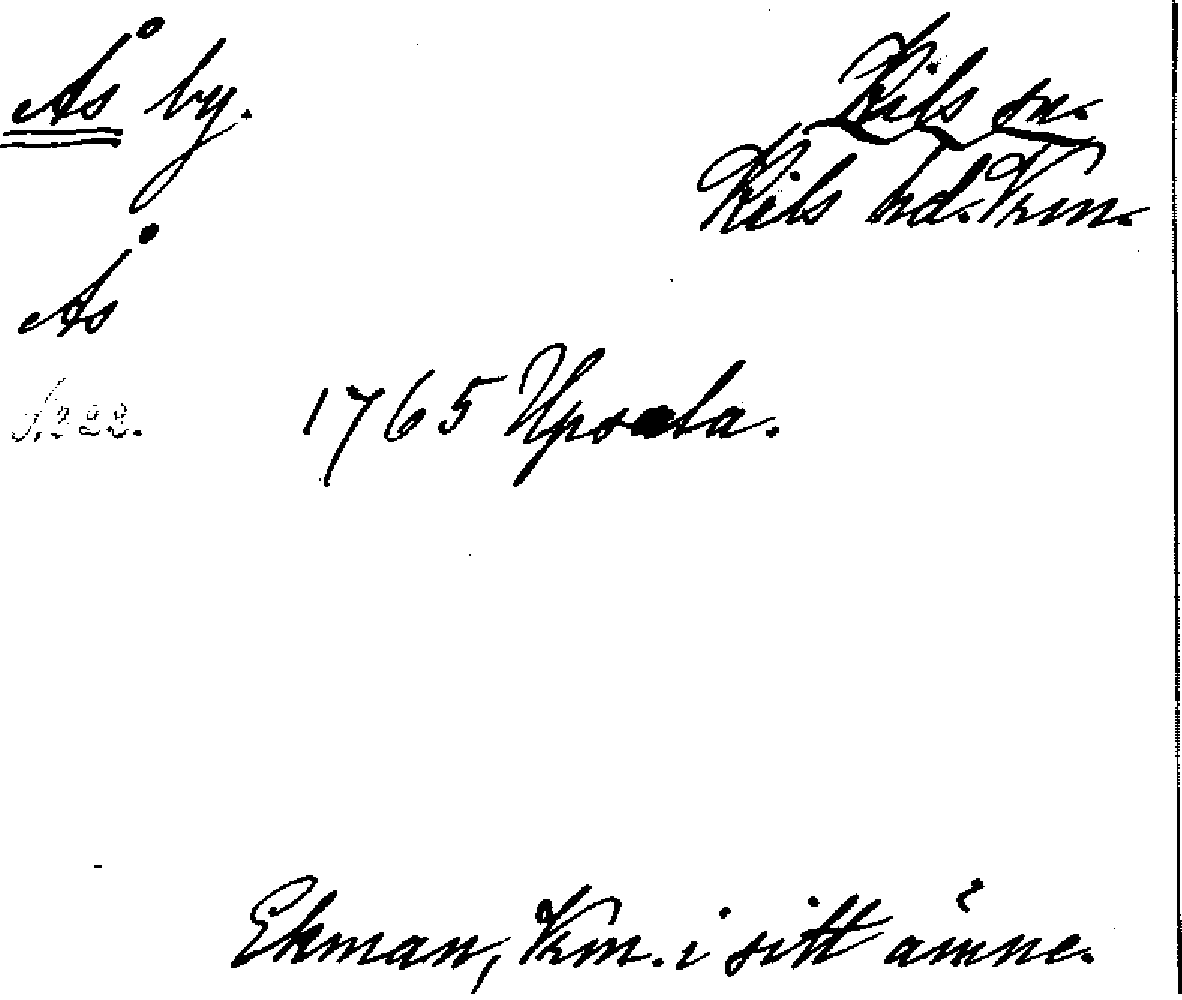 Ås by.
Kils sn.
Kils hd. Vrm.
Ås
S. 222. 1765 Upsala.
Ekman, Vrm. i sitt ämne.